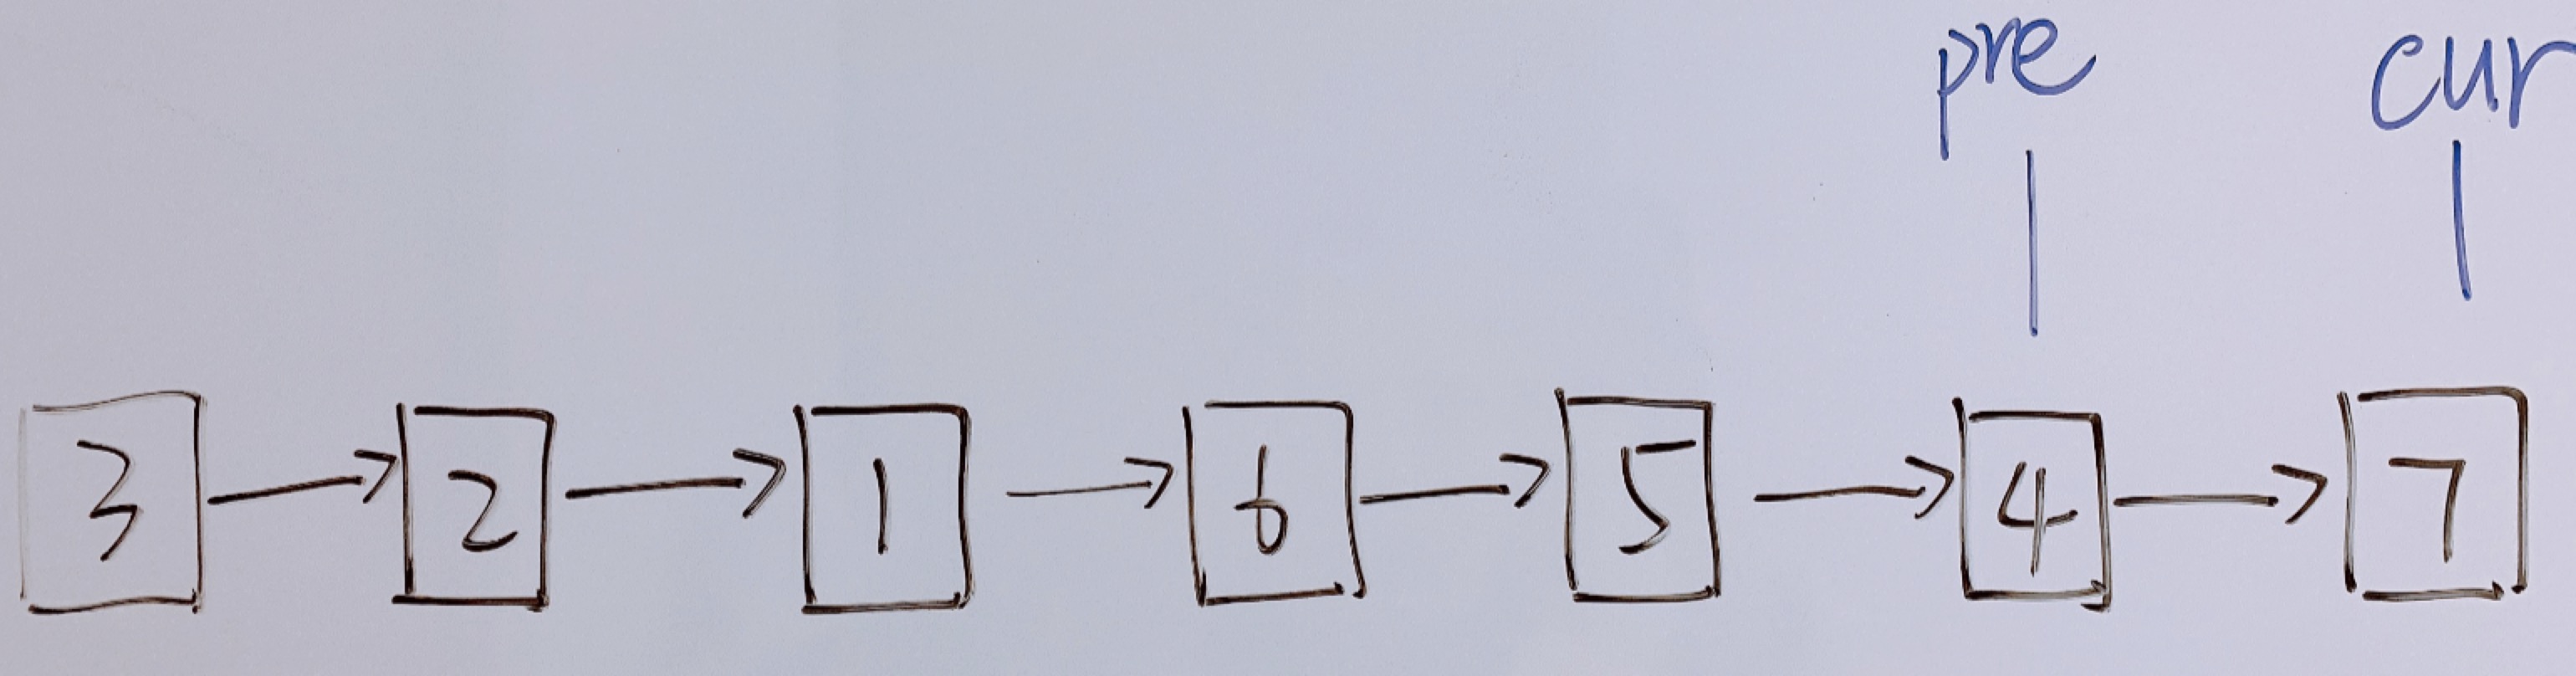 pre cur
3 → 2 → 1 → 6 → 5 → 4 → 7